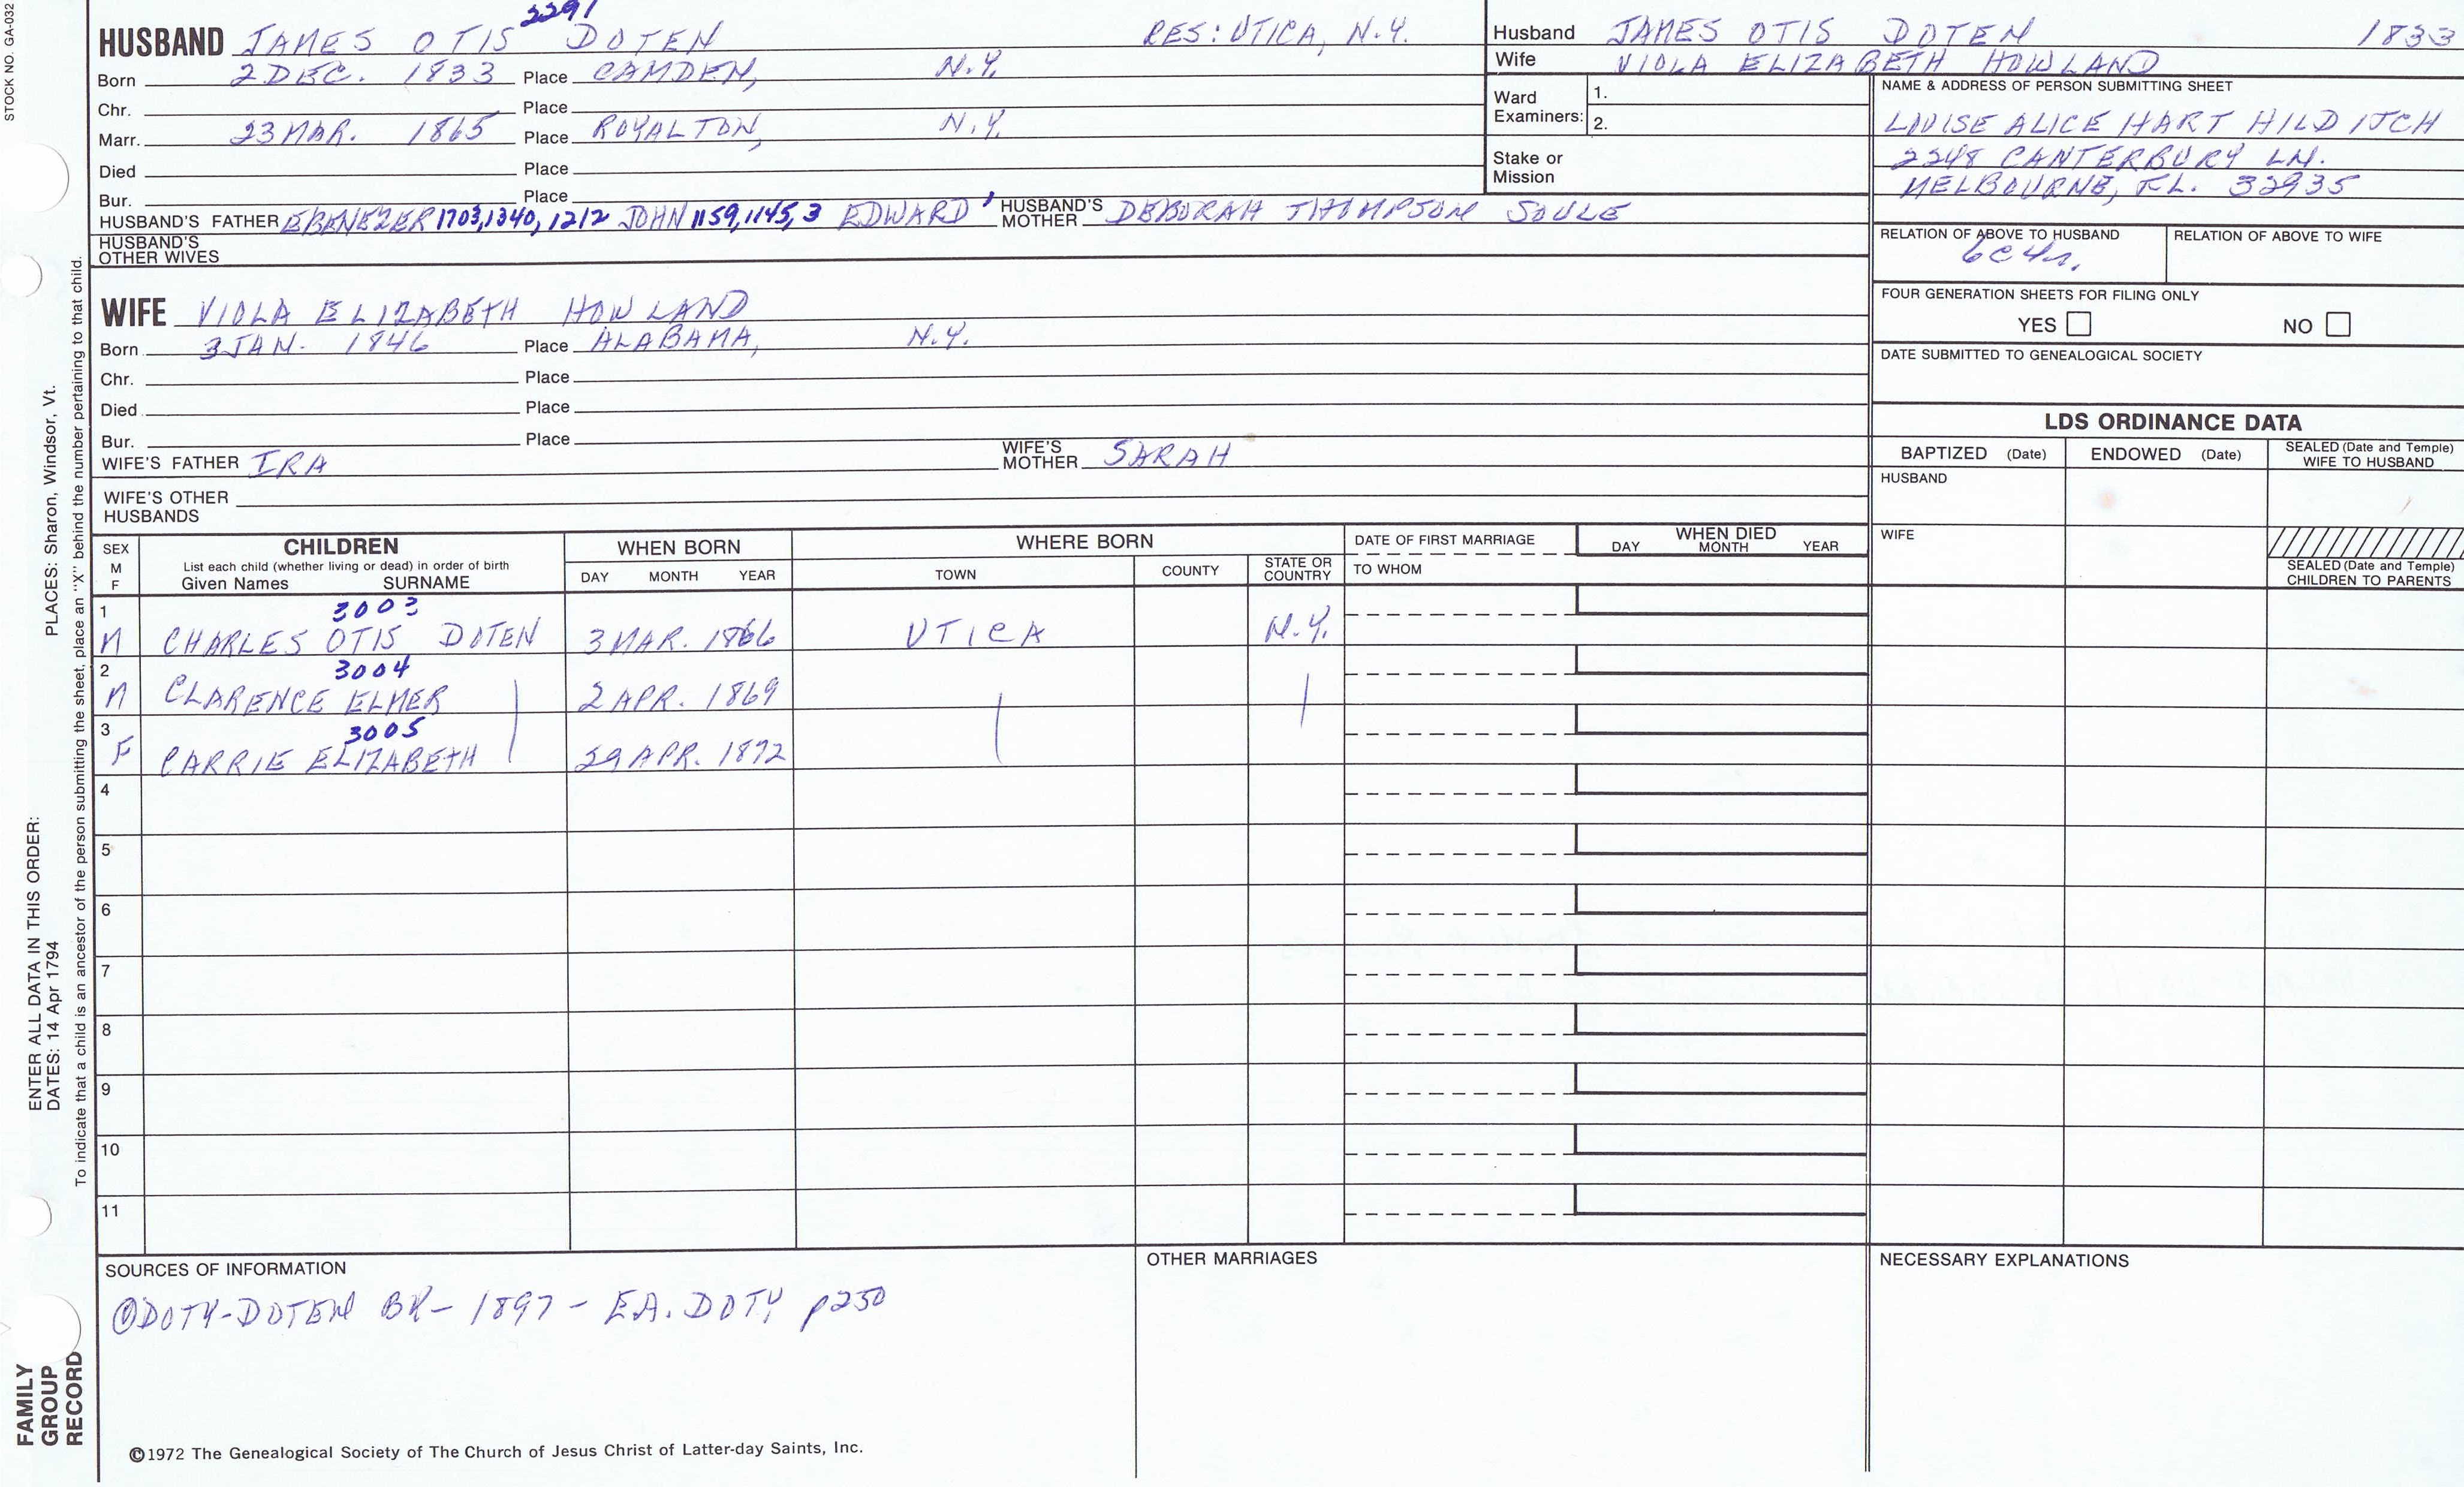 STOCK NO. GA-032
2291
HUSBAND JAMES OTIS DOTEN RES: UTICA, N.Y.
Born 2 DEC. 1833 Place CAMDEN, N.Y.
Chr. Place
Marr. 23 MAR. 1865 Place ROYALTON, N.Y.
Died Place
Bur. Place
HUSBAND'S FATHER EBENEZER 1703,1340,1212 JOHN 1159,1145,3 EDWARD ' HUSBAND'S MOTHER DEBORAH THOMPSON SOULE
HUSBAND'S OTHER WIVES
WIFE VIOLA ELIZABETH HOWLAND
Born 3 JAN. 1846 Place ALABAMA, N.Y.
Chr. Place
Died Place
Bur. Place
WIFE'S FATHER IRA WIFE'S MOTHER SARAH
WIFE'S OTHER HUSBANDS
Husband JAMES OTIS DOTEN 1833
Wife VIOLA ELIZABETH HOWLAND
Ward Examiners: 1.
2.
Stake or Mission
NAME & ADDRESS OF PERSON SUBMITTING SHEET
LOUISE ALICE HART HILDITCH
2248 CANTERBURY LN.
MELBOURNE, FL. 32935
RELATION OF ABOVE TO HUSBAND RELATION OF ABOVE TO WIFE
6C4r.
FOUR GENERATION SHEETS FOR FILING ONLY
YES NO
DATE SUBMITTED TO GENEALOGICAL SOCIETY
LDS ORDINANCE DATA
BAPTIZED (Date) ENDOWED (Date) SEALED (Date and Temple) WIFE TO HUSBAND
HUSBAND
WIFE
SEALED (Date and Temple) CHILDREN TO PARENTS
SEX M F CHILDREN WHEN BORN WHERE BORN DATE OF FIRST MARRIAGE WHEN DIED
List each child (whether living or dead) in order of birth
Given Names SURNAME DAY MONTH YEAR TOWN COUNTY STATE OR COUNTRY TO WHOM DAY MONTH YEAR
1 3003
M CHARLES OTIS DOTEN 3 MAR. 1866 UTICA N.Y.
2 3004
M CLARENCE ELMER | 2 APR. 1869 | |
3 3005
F CARRIE ELIZABETH 29 APR. 1872
4
5
6
7
8
9
10
11
SOURCES OF INFORMATION OTHER MARRIAGES NECESSARY EXPLANATIONS
① DOTY-DOTEN BK - 1897 - E.A. DOTY p250
©1972 The Genealogical Society of The Church of Jesus Christ of Latter-day Saints, Inc.
FAMILY GROUP RECORD
ENTER ALL DATA IN THIS ORDER:
DATES: 14 Apr 1794 PLACES: Sharon, Windsor, Vt.
To indicate that a child is an ancestor of the person submitting the sheet, place an "X" behind the number pertaining to that child.